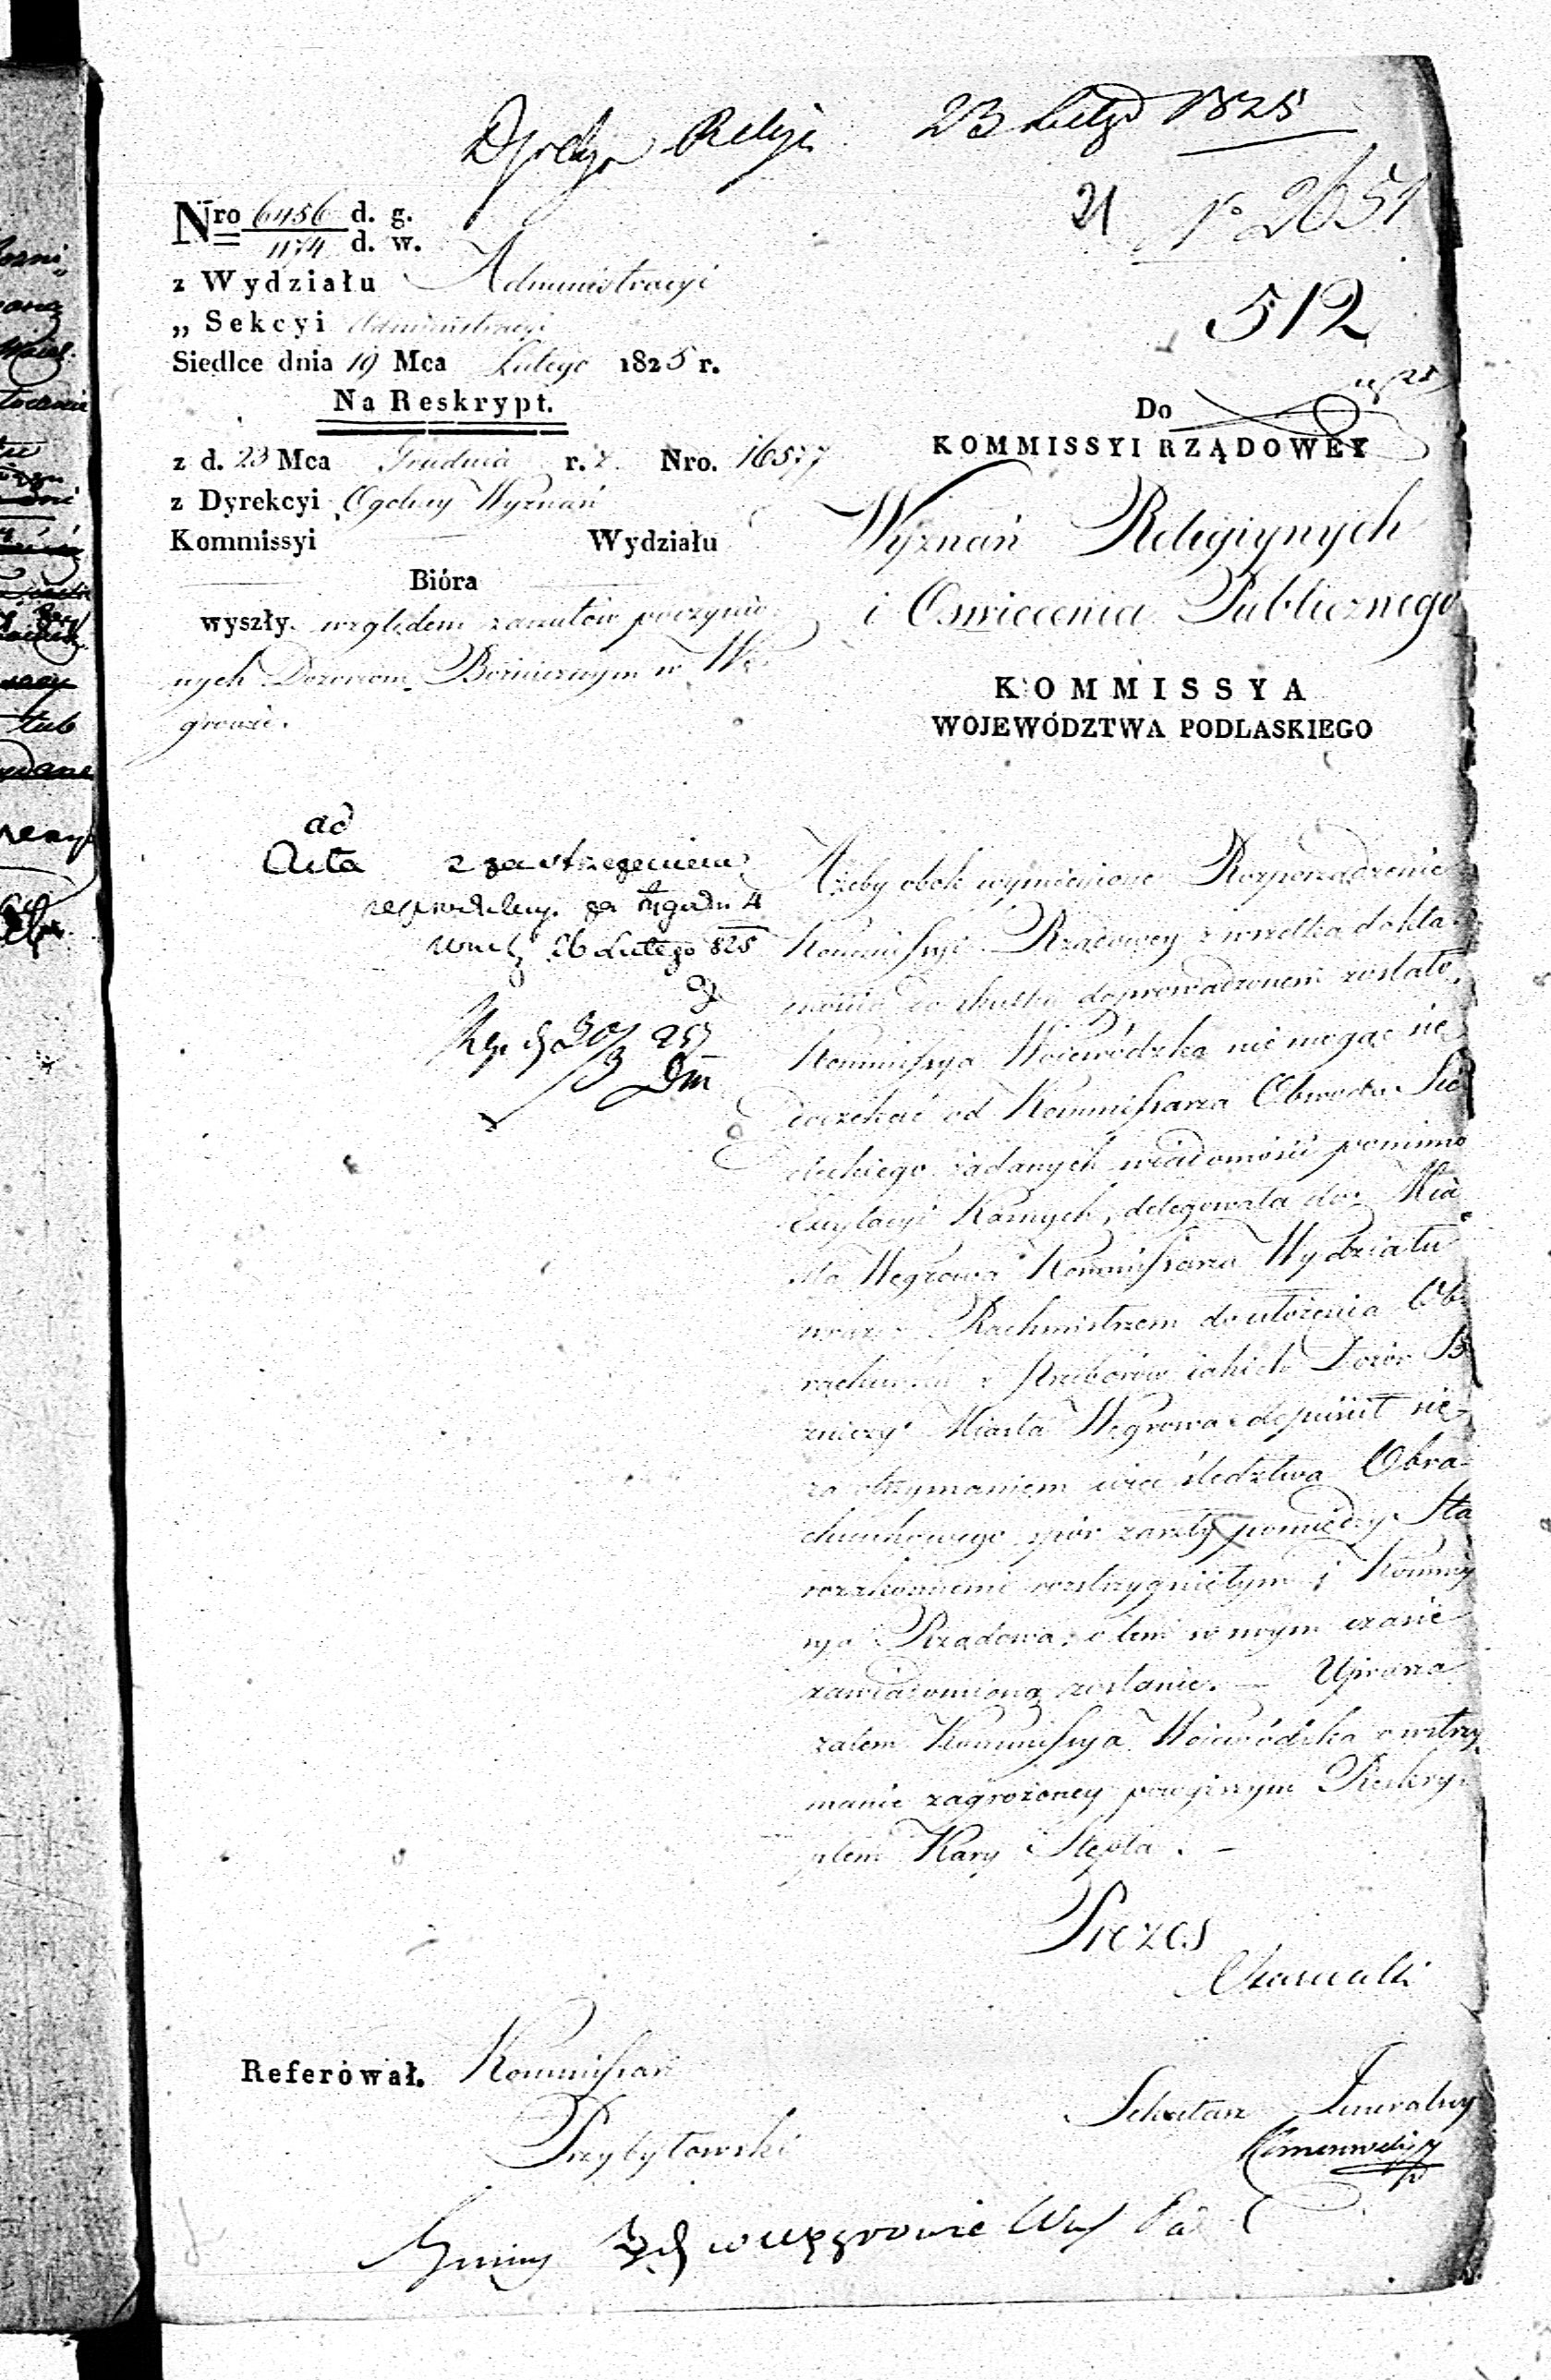 23 Lutego 1825
21 No 2651
512
Nro 6456 d. g.
1174 d. w.
z Wydziału Administracyi
„ Sekcyi Administracyi
Siedlce dnia 19 Mca Lutego 1825 r.
Na Reskrypt.
z d. 23 Mca Grudnia r. z. Nro. 16577
z Dyrekcyi Ogolney Wyznań
Kommissyi Wydziału
Bióra
wyszły. względem zarzutów poczynio
nych Dozorom Bożnicznym w Wę
growie.
Do
KOMMISSYI RZĄDOWEY
Wyznań Religiynych
i Oswiecenia Publicznego
KOMMISSYA
WOJEWÓDZTWA PODLASKIEGO
ad
Acta z zastrzeżeniem
za tygodni 4
26 Lutego 825
Ażeby obok wymienione Rozporządzenie
Kommissyi Rządowey z wszelką dokła
dnością do skutku doprowadzonem zostało,
Kommissya Woiewódzka nie mogąc się
doczekać od Kommissarza Obwodu Sie
dleckiego żądanych wiadomości pomimo
Karnych, delegowała do Mia
sta Węgrowa Kommissarza Wydziału
wraz z Rachmistrzem do ułożenia Ob
rachunku z poborów iakich Dozór Bo
zniczy Miasta Węgrowa dopuścił się,
za otrzymaniem więc śledztwa Obra
chunkowego spór zaszły pomiędzy Sta
rozakonnemi rozstrzygniętym i Kommis
sya Rządowa, o tem w swym czasie
zawiadomioną zostanie. — Uprasza
zatem Kommissya Woiewódzka o wstrzy
manie zagrożoney powyższym Reskry
ptem Kary Stępla. —
Prezes
Referował. Kommissarz
Przybyłowski
Sekretarz Jeneralny
Gminy w Węgrowie